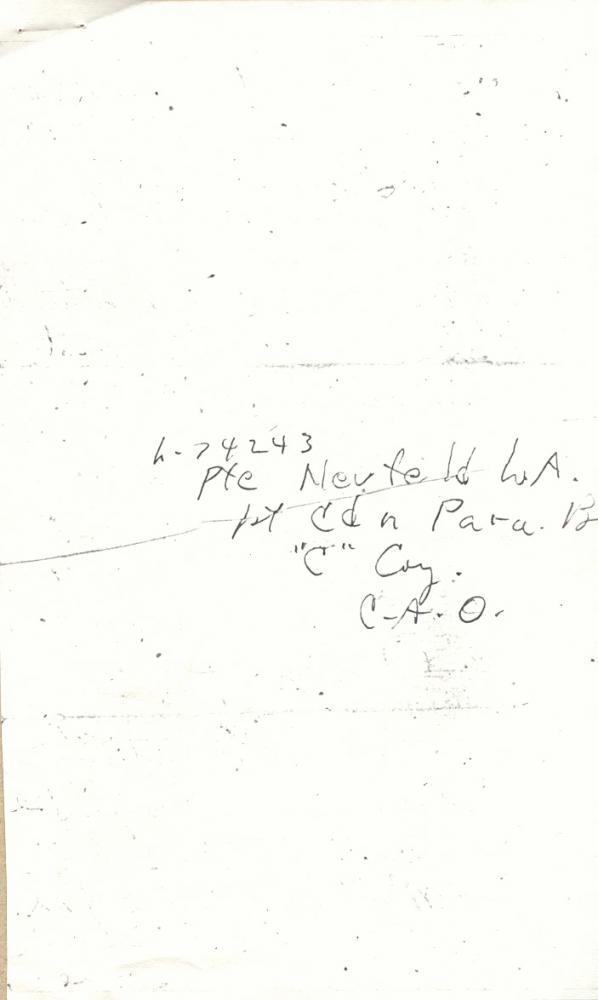 h-74243
Pte Neufeld W.A.
1st Cdn Para. B
"C" Coy.
C.A.O.